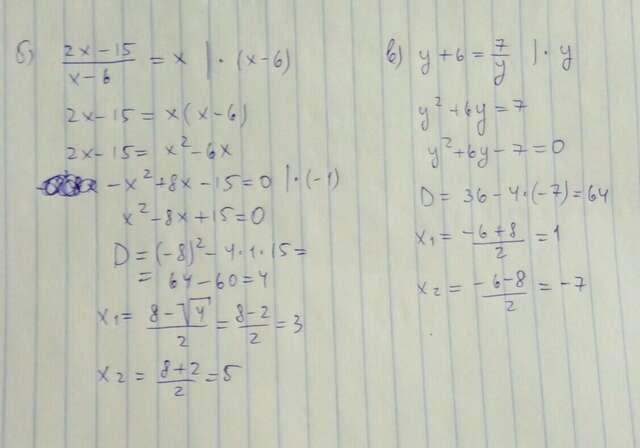 б) (2x-15)/(x-6) = x | · (x-6)
2x-15 = x(x-6)
2x-15 = x²-6x
-x²+8x-15=0 | · (-1)
x²-8x+15=0
D=(-8)²-4·1·15=
= 64-60=4
x₁= (8-√4)/2 = (8-2)/2 = 3
x₂ = (8+2)/2 = 5
в) y+6 = 7/y | · y
y²+6y=7
y²+6y-7=0
D= 36-4·(-7)=64
x₁= (-6+8)/2 = 1
x₂ = (-6-8)/2 = -7